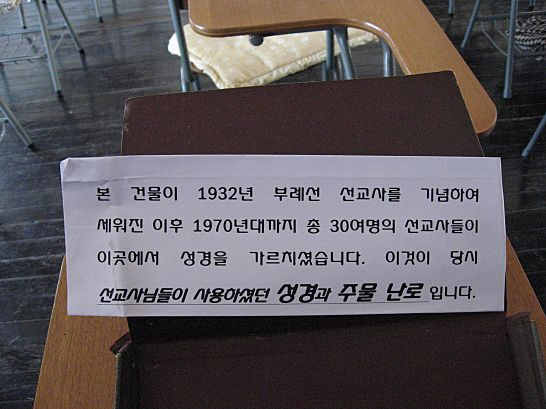 본 건물이 1932년 부례선 선교사를 기념하여
세워진 이후 1970년대까지 총 30여명의 선교사들이
이곳에서 성경을 가르치셨습니다. 이것이 당시
선교사님들이 사용하셨던 성경과 주물 난로 입니다.